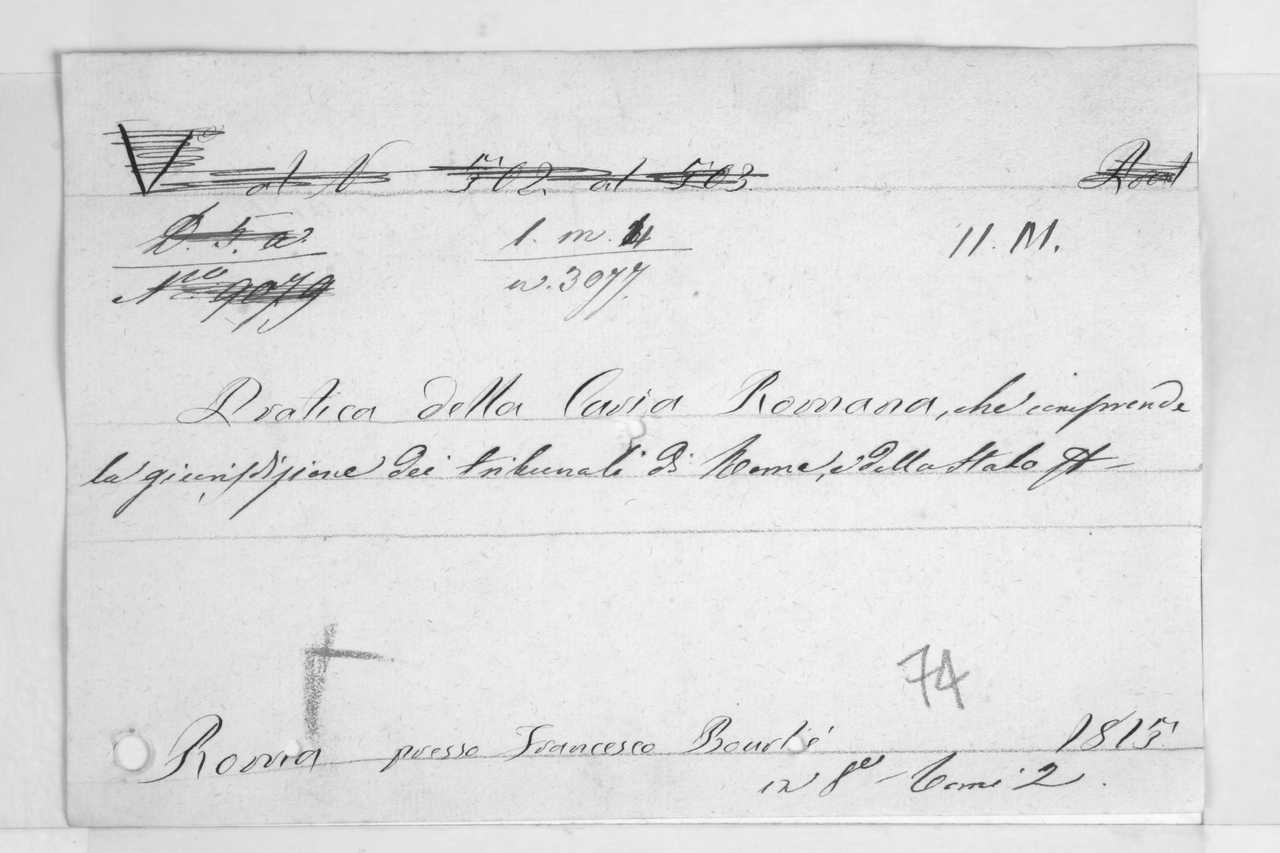 V al N 502. al 503.
D. 5. a. 1. m. 4 11. M.
N.ro 9079 n. 3077.
Pratica della Curia Romana, che comprende
la giurisdizione dei tribunali di Roma, e dello Stato
74
Roma presso Francesco Bourlié 1815.
in 8.o - Tomi 2.